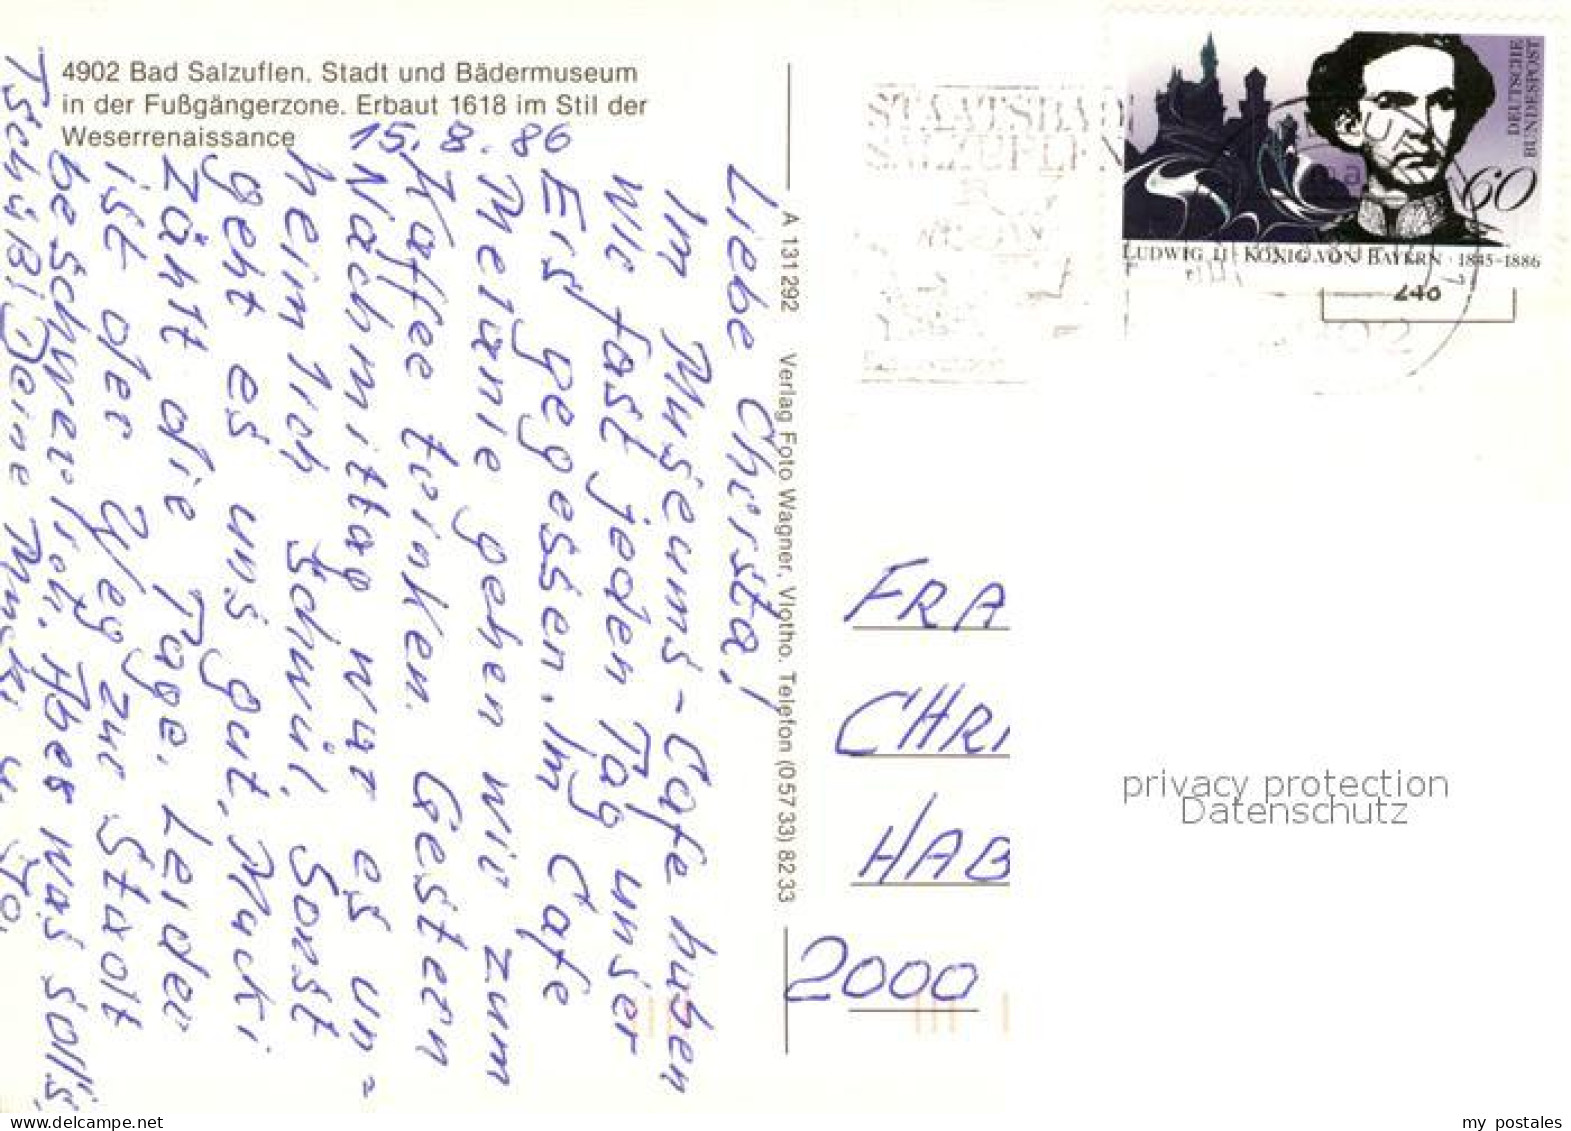 4902 Bad Salzuflen. Stadt und Bädermuseum
in der Fußgängerzone. Erbaut 1618 im Stil der
Weserrenaissance
15. 8. 86
Liebe Christa!
Im Museums-Cafe haben
wir fast jeden Tag unser
Eis gegessen. Im Cafe
Melanie gehen wir zum
Kaffee trinken. Gestern
Nachmittag war es un=
heimlich schwül. Sonst
geht es uns gut. Mucki
zählt die Tage. Leider
ist der Weg zur Stadt
beschwerlich. Aber was solls.
Tschüß! Deine Mucki u. Jo.
A 131 292 Verlag Foto Wagner, Vlotho. Telefon (0 57 33) 82 33
STAATSBAD
SALZUFLEN
DEUTSCHE
BUNDESPOST
60
LUDWIG II · KÖNIG VON BAYERN · 1845-1886
246
FRA
CHRI
HAB
2000
privacy protection
Datenschutz
my postales